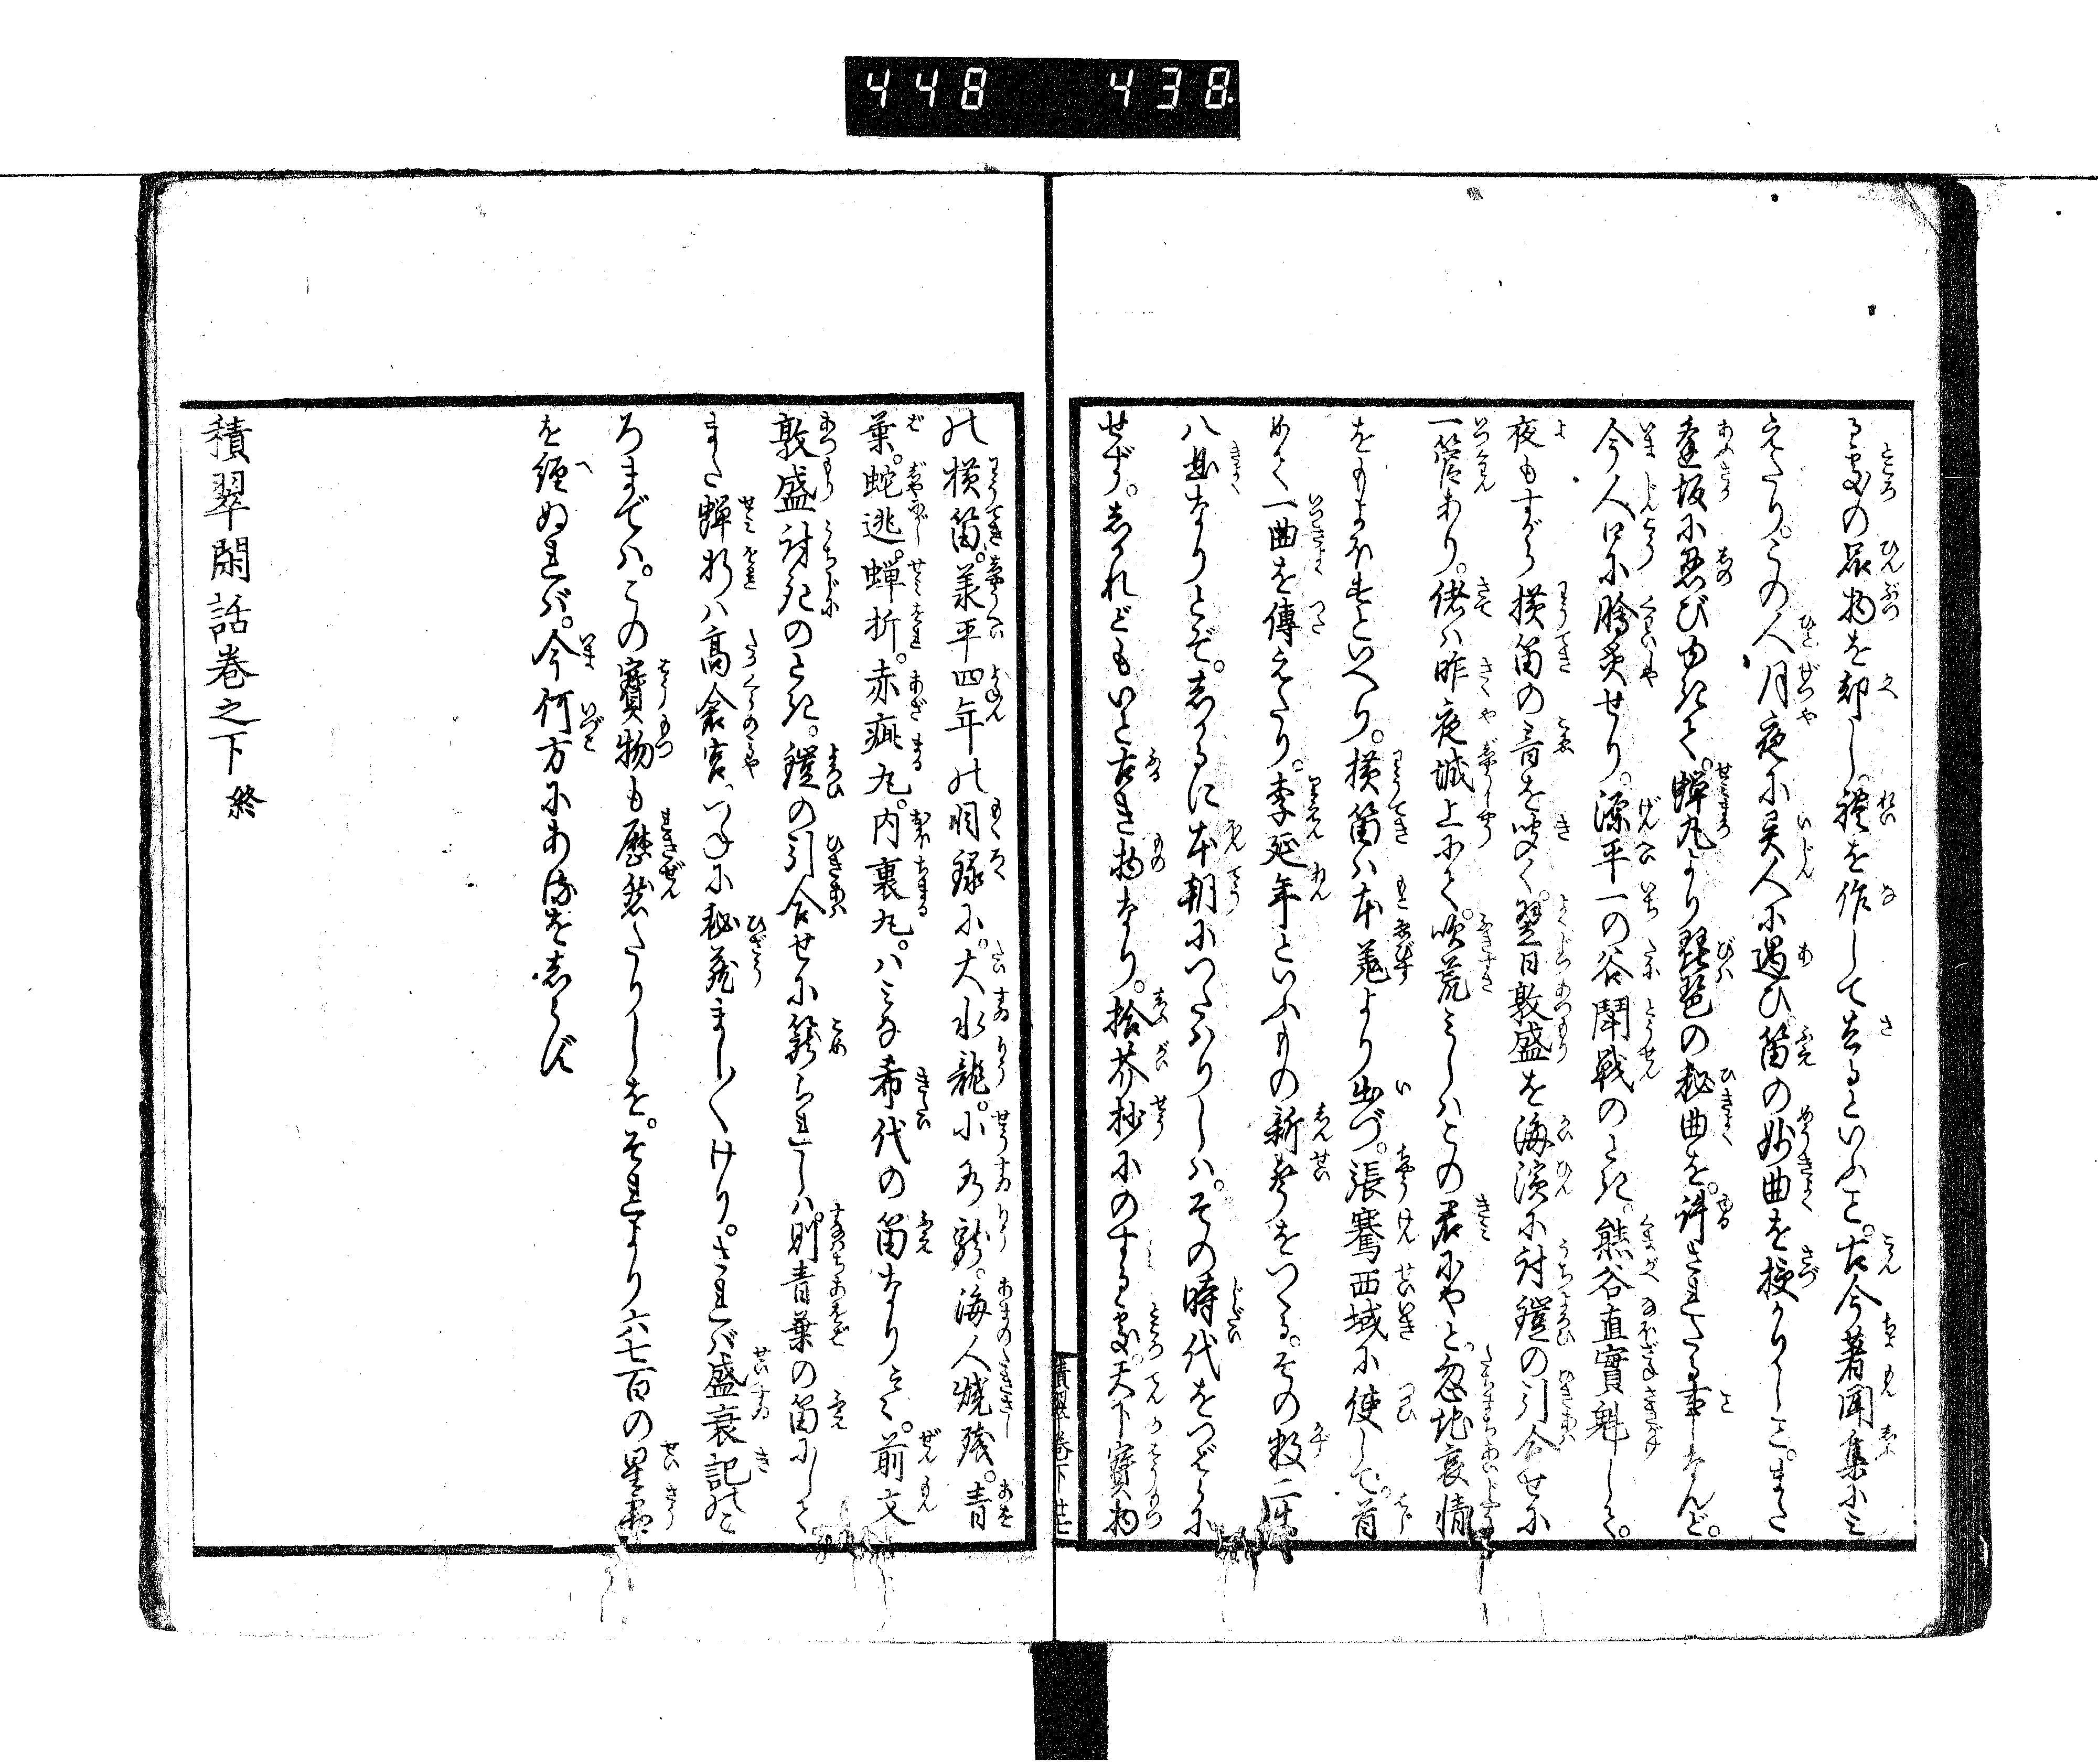 448 438
る処の品物を却し。礼を作して去るといふこと。古今著聞集にみ
えたり。この人月夜に異人に遇ひ。笛の妙曲を授かりしこと。また
逢坂に忍びゆきて。蝉丸より琵琶の秘曲を。許されたる事なんど。
今人口に膾炙せり。源平一の谷闘戦のとき。熊谷直實魁して。
夜もすがら横笛の音を聞く。翌日敦盛を海濱に討鎧の引合せに
一管あり。偖は昨夜城上にて。吹荒みしはこの君にやと。忽地哀情
をもよほせしといへり。横笛は本羗より出づ。張騫西域に使して。首
めて一曲を傳えたり。李延年といふもの新声をつくる。その数二十
八曲なりとぞ。しかるに本朝につたはりしは。その時代をつばらに
せず。しかれどもいと古き物なり。拾芥抄にのする処。天下寳物
の横笛。承平四年の目録に。大水龍。小水龍。海人焼残。青
葉。蛇逃。蝉折。赤痣丸。内裏丸。はみな希代の笛なりとぞ。前文
敦盛討死のとき。鎧の引合せに籠られしは。則青葉の笛にして
また蝉折は高倉宮。つねに秘蔵まし〱けり。されば盛衰記のこ
ろまでは。この寳物も歴然たりしを。それより六七百の星霜
を経ぬれば。今何方にあるをしらず
積翠閑話巻之下 終
積翠 巻下